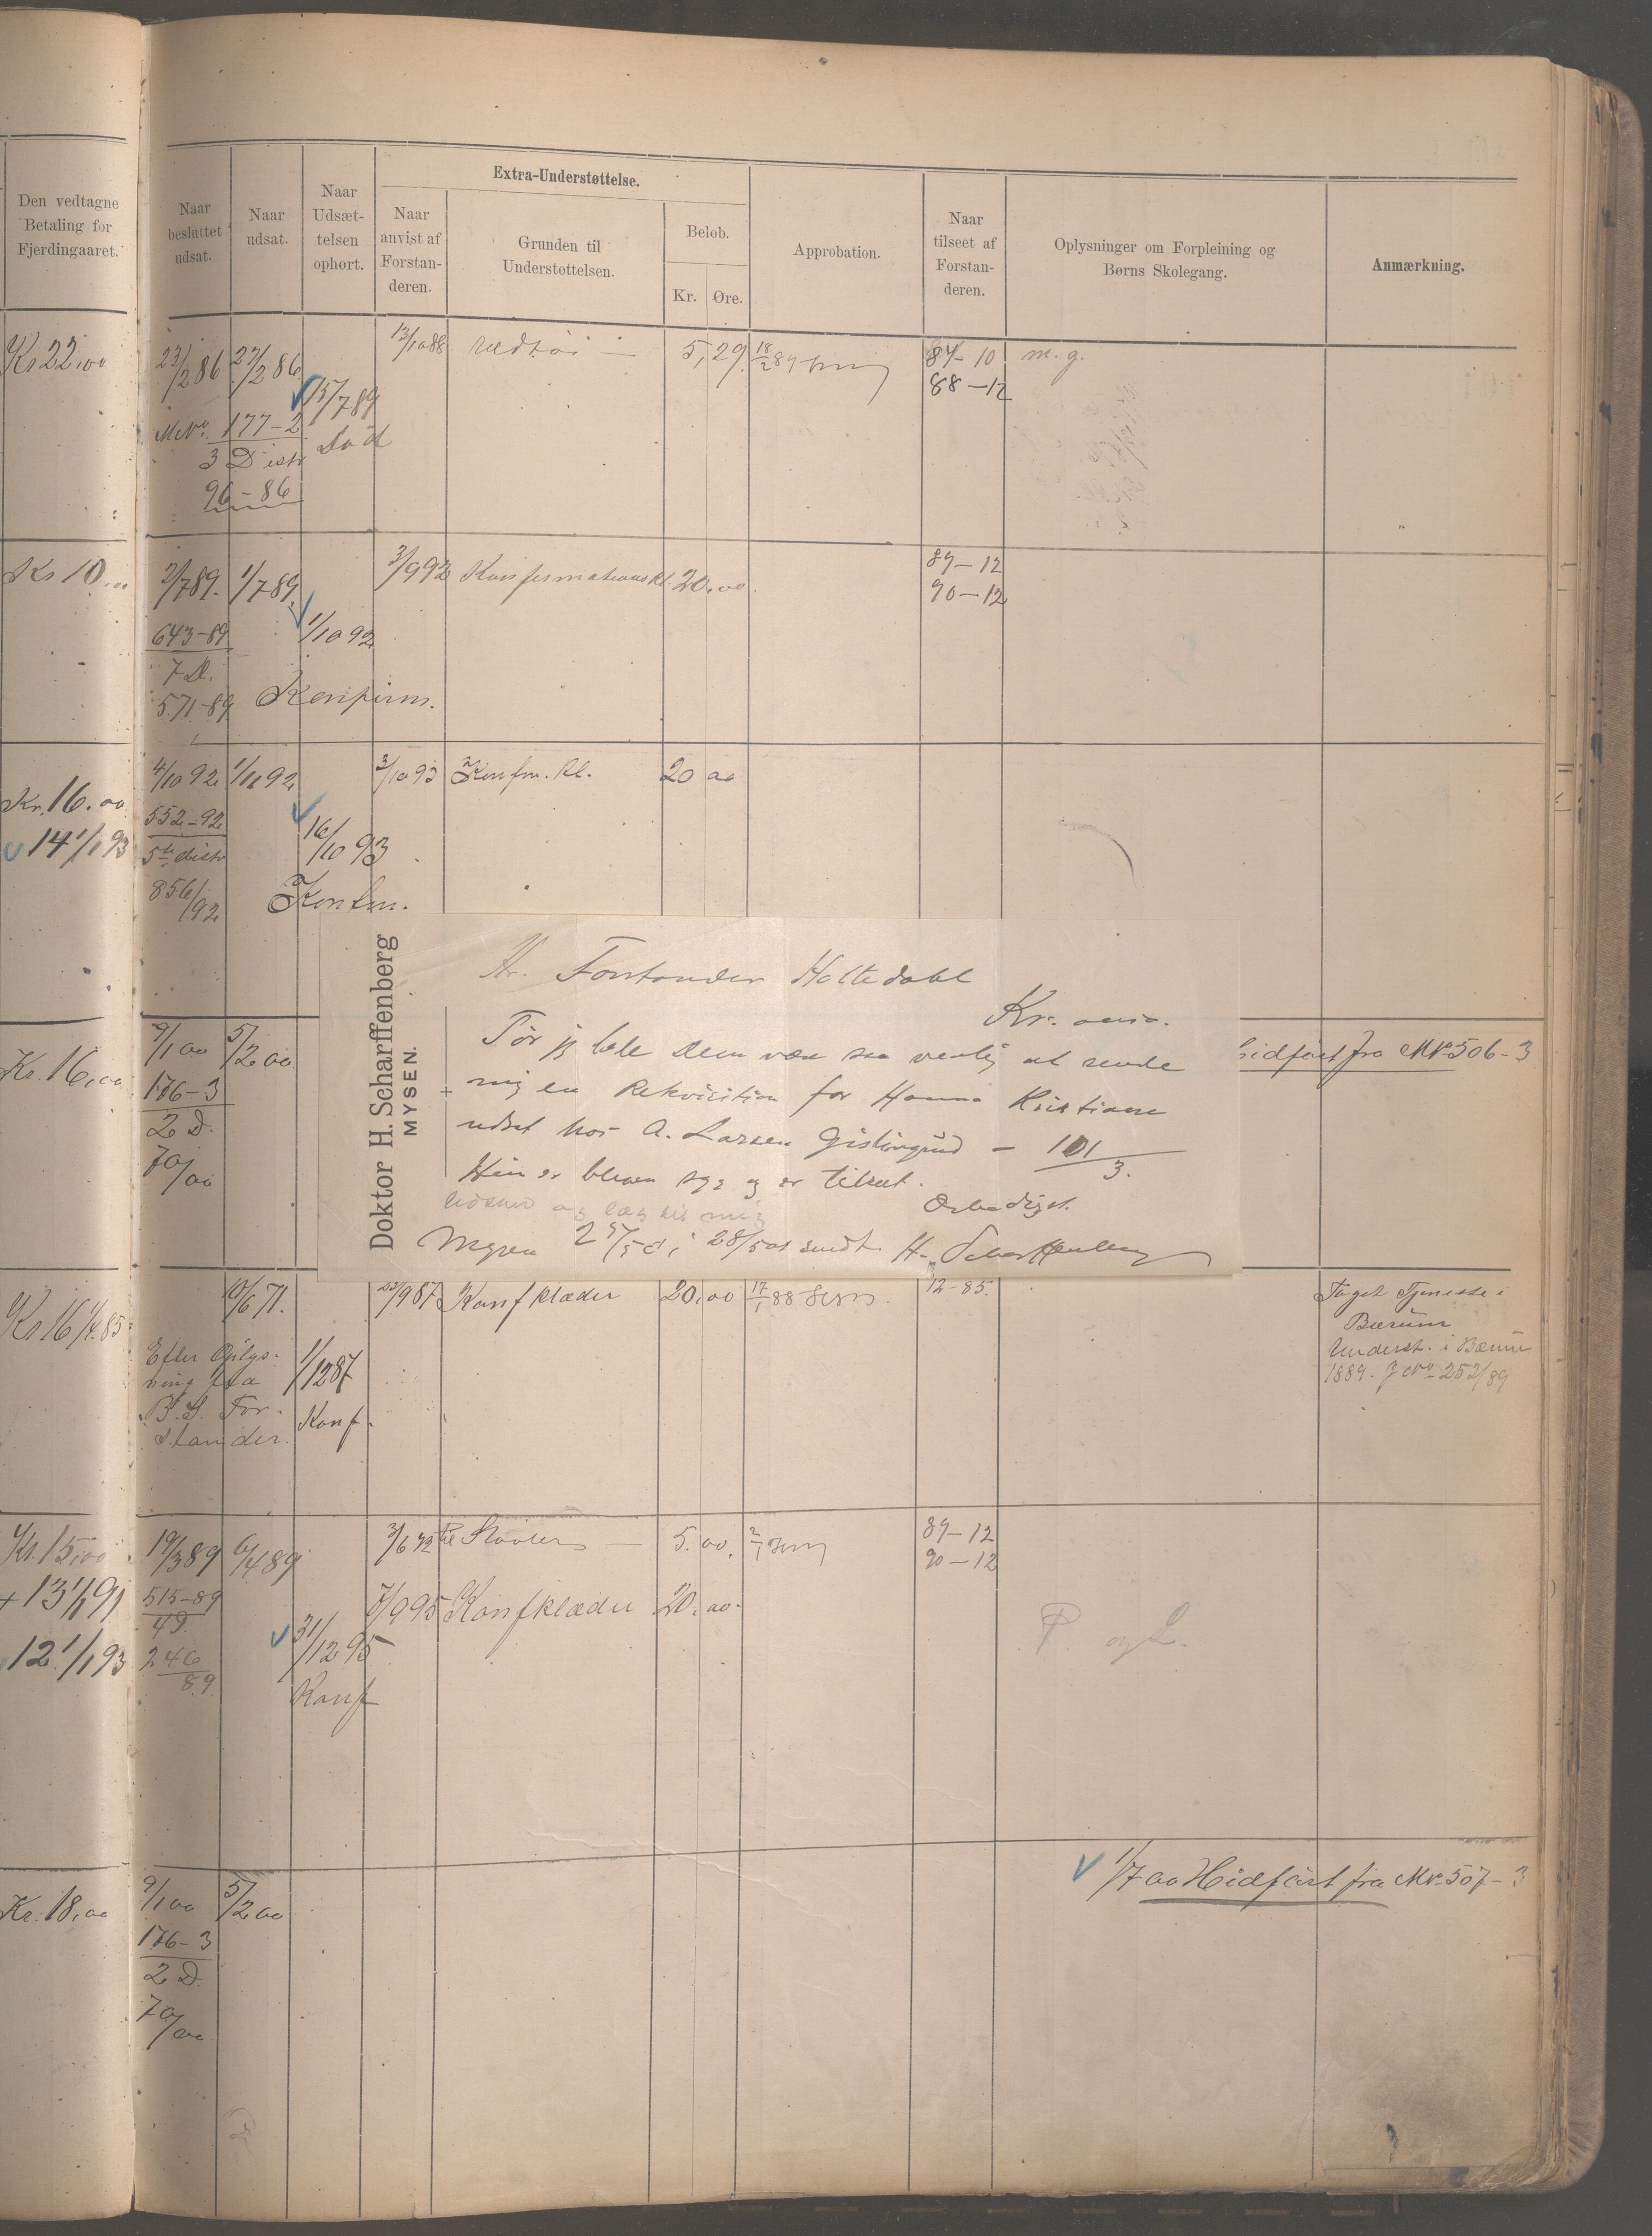 Den vedtagne
Betaling for
Fjerdingaaret.
Naar
besluttet
udsat.
Naar
udsat.
Naar
Udsæt-
telsen
ophørt.
Extra-Understøttelse.
Naar
anvist af
Forstan-
deren.
Grunden til
Understøttelsen.
Beløb.
Kr. Øre.
Approbation.
Naar
tilseet af
Forstan-
deren.
Oplysninger om Forpleining og
Børns Skolegang.
Anmærkning.
Kr 22,00
23/2 86 27/2 86 13/10 88 5,29 18/2 89 87-10 m. g.
88-12
15/7 89
MNo. 177-2 Død
3 Distr
96-86
Kr 10,00
2/7 89. 1/7 89. 3/9 92 Konfirmations kl. 20,00 89-12
90-12
643-89 1/10 92
7 D.
571-89 Konfirm.
4/10 92 1/11 92 3/10 93 Konfm. kl. 20 00
Kr. 16.00
552-92
14 1/1 93 5te distr 16/10 93
856/92 Konfm.
Doktor H. Scharffenberg
MYSEN.
Hr. Forstander Holtedahl
Kr.ania.
Tør jeg bede Dem være saa venlig at sende
mig en Rekvisition for Hanna Kristiane
udsat hos A. Larsen Gislingrud - 101/3.
Hun er bleven syg og er tilseet.
Ærbødigst.
Mysen 27/5 01 28/5 01 sendt H. Scharffenberg
9/1 00 5/2 00 Hidført fra MNo 506-3
Kr. 16,00
176-3
2 D.
70/00
Kr 16 1/4 85
10/6 71. 22/9 87 Konfklæder 20,00 17/1 88 12-85. Taget Tjeneste i
Bærum
Underst. i Bærum
1889. J No 252/89
Efter Oplys-
ning fra 1/12 87
B. S. For-
stander. Konf.
Kr. 15,00 19/3 89 6/4 89 3/6 92 5.00. 89-12
90-12
+ 13 1/1 91 515-89 7/9 95 Konfklæder 20,00
4 D.
31/12 95
12 1/1 93 246/89
Konf
P og L.
1/7 00 Hidført fra MNo 507-3
Kr. 18,00 9/1 00 5/2 00
176-3
2 D.
70/00